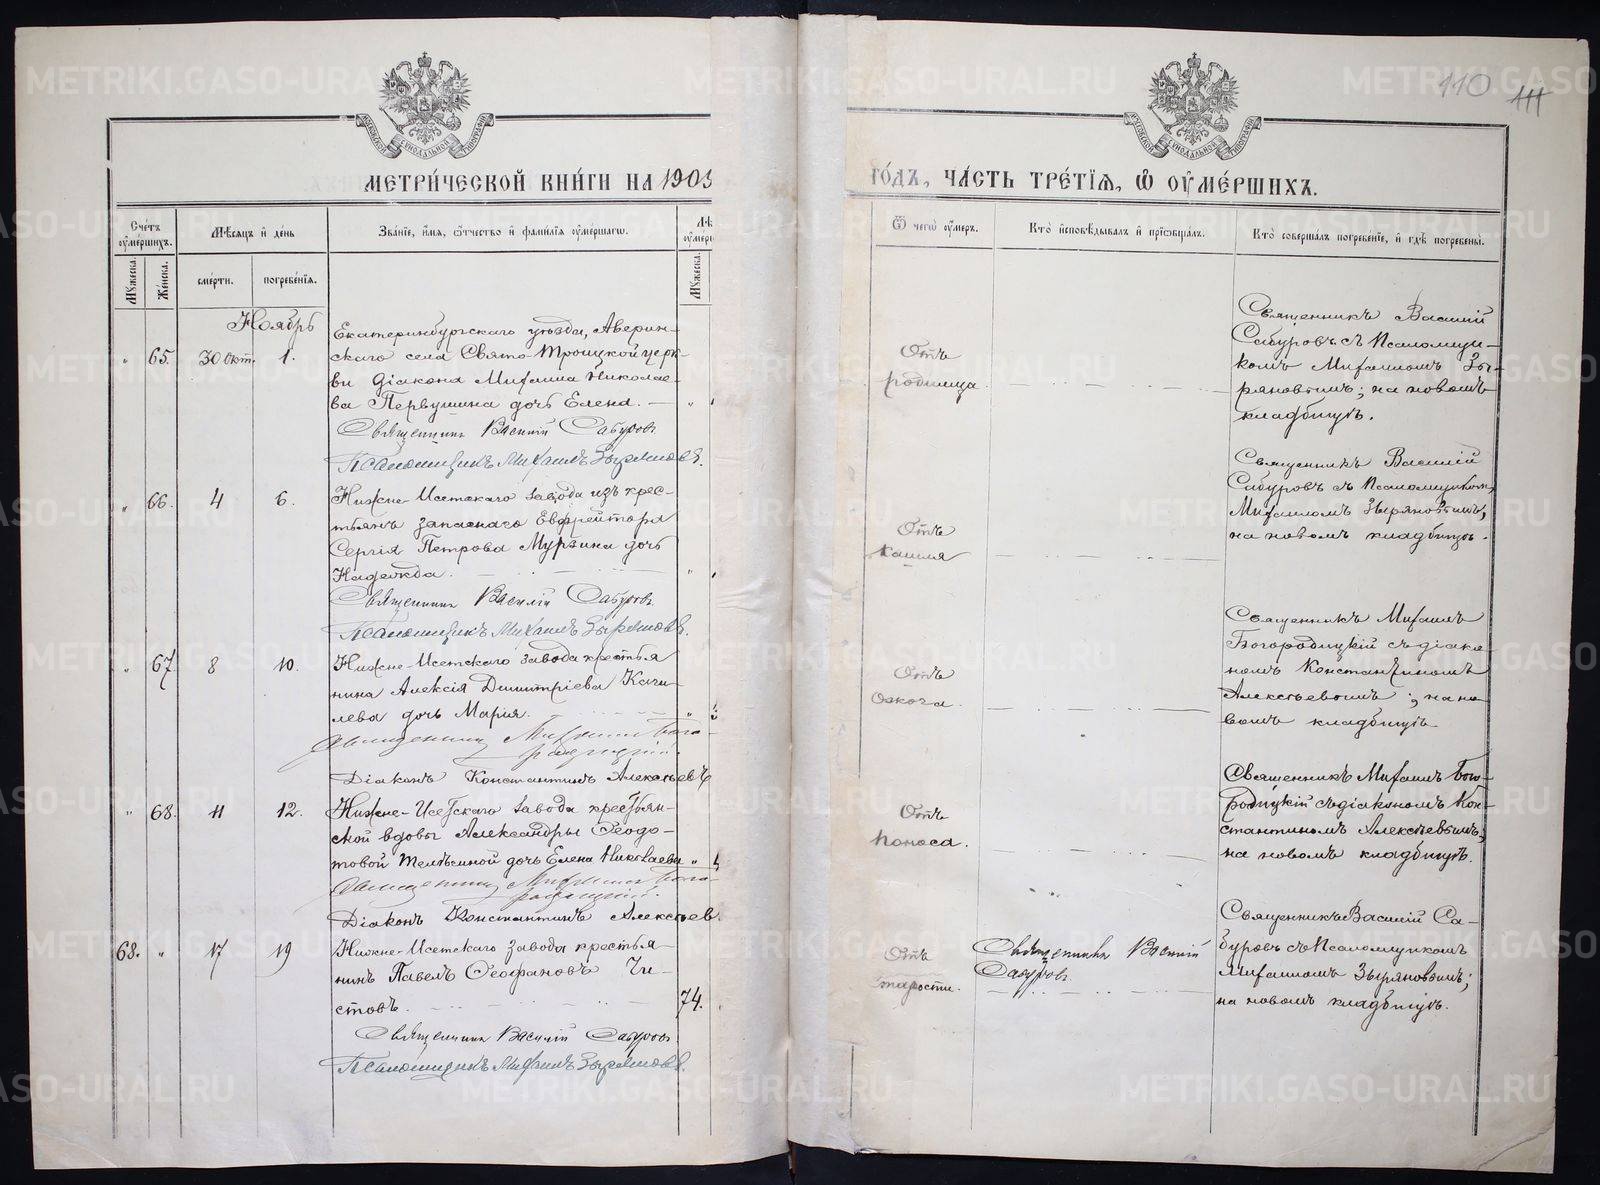 МЕТРИ́ЧЕСКОЙ КНИ́ГИ НА 1903
ГО́ДЪ, ЧА́СТЬ ТРЕ́ТІѦ, Ѡ ОУМЕ́РШИХЪ.
110
111
Сче́тъ оуме́ршихъ.
Мѣсѧцъ и де́нь
Зва́нїе, и́мѧ, ѻ́тчество и фами́лїѧ оуме́ршагѡ.
Му́жеска.
Же́нска.
сме́рти.
погребе́нїѧ.
Му́жеска.
Ѿ чегѡ̀ оу́меръ.
Кто̀ исповѣ́дывалъ и прїѡбща́лъ.
Кто̀ соверша́лъ погребе́нїе, и гдѣ̀ погребены̀.
Ноябрь
" 65. 30 окт. 1.
Екатеринбургскаго уѣзда, Аверин-
скаго села Свято-Троицкой церк-
ви діакона Михаила Николае-
ва Первушина дочь Елена. —
Священникъ Василій Сабуровъ
Псаломщикъ Михаилъ Зыряновъ.
Отъ
родимца.
Священникъ Василій
Сабуровъ съ Псаломщи-
комъ Михаиломъ Зы-
ряновымъ; на новомъ
кладбищѣ.
" 66. 4 6.
Нижне-Исетскаго завода изъ крес-
тьянъ запаснаго Ефрейтора
Сергія Петрова Мурзина дочь
Надежда.
Священникъ Василій Сабуровъ
Псаломщикъ Михаилъ Зыряновъ.
Отъ
кашля
Священникъ Василій
Сабуровъ съ Псаломщикомъ
Михаиломъ Зыряновымъ;
на новомъ кладбищѣ.
" 67. 8 10.
Нижне-Исетскаго завода крестья
нина Алексія Димитріева Качи-
лева дочь Мария.
Священникъ Михаилъ Бого-
родицкій.
Діаконъ Константинъ Алексѣевъ
Отъ
ожога.
Священникъ Михаилъ
Богородицкій съ діако
номъ Константиномъ
Алексѣевымъ; на но-
вомъ кладбищѣ
" 68. 11 12.
Нижне-Исетскаго завода крестьян-
ской вдовы Александры Ѳеодо-
товой дочь Елена Николаева "
Священникъ Михаилъ Бого-
родицкій.
Діаконъ Константинъ Алексѣев.
Отъ
поноса.
Священникъ Михаилъ Бого-
родицкій съ діакономъ Кон-
стантиномъ Алексѣевымъ;
на новомъ кладбищѣ.
68. " 17 19
Нижне-Исетскаго завода крестья-
нинъ Павелъ Ѳеофановъ Чи-
стовъ. 74.
Священникъ Василій Сабуровъ
Псаломщикъ Михаилъ Зыряновъ.
Отъ
старости.
Священникъ Василій
Сабуровъ.
Священникъ Василій Са-
буровъ съ Псаломщикомъ
Михаиломъ Зыряновымъ;
на новомъ кладбищѣ.
METRIKI.GASO-URAL.RU